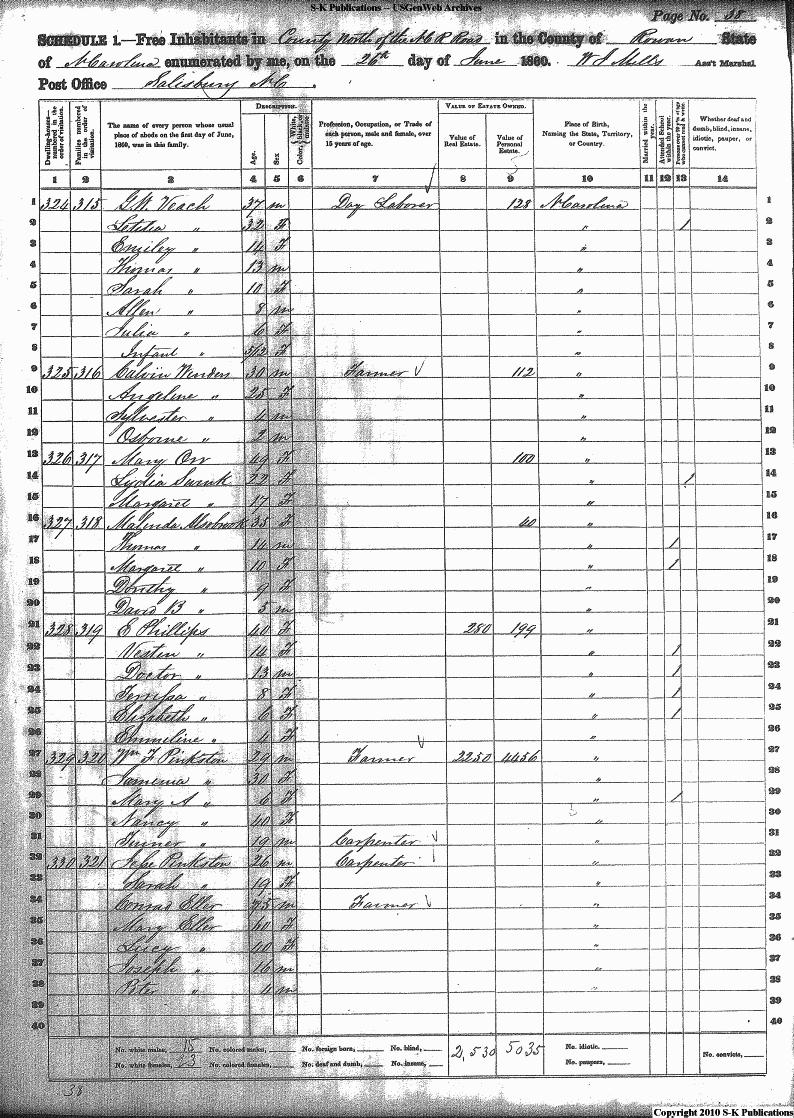 S-K Publications -- USGenWeb Archives
Page No. 38
SCHEDULE 1.—Free Inhabitants in County North of the N C R Road in the County of Rowan State
of N Carolina enumerated by me, on the 26th day of June 1860. Ass't Marshal
Post Office Salisbury N C.
Dwelling-houses numbered in the order of visitation. Families numbered in the order of visitation. The name of every person whose usual place of abode on the first day of June, 1860, was in this family. DESCRIPTION. Age. Sex Color, White, black or mulatto Profession, Occupation, or Trade of each person, male and female, over 15 years of age. VALUE OF ESTATE OWNED. Value of Real Estate. Value of Personal Estate. Place of Birth, Naming the State, Territory, or Country. Married within the year. Attended School within the year. Whether deaf and dumb, blind, insane, idiotic, pauper, or convict.
1 2 3 4 5 6 7 8 9 10 11 12 13 14
1 324 315 G W Veach 37 m Day Laborer 128 N Carolina 1
2 Letitia " 32 F " / 2
3 Emiley " 14 F " 3
4 Thomas " 13 m " 4
5 Sarah " 10 F " 5
6 Allen " 8 m " 6
7 Julia " 6 F " 7
8 Infant " 3/12 F " 8
9 325 316 Calvin Winders 30 m Farmer 112 " 9
10 Angeline " 25 F " 10
11 Sylvester " 4 m " 11
12 Osborne " 2 m " 12
13 326 317 Mary Orr 49 F 100 " 13
14 Lydia 22 F " / 14
15 Margaret " 17 F " 15
16 327 318 Malinda Alsobrook 35 F 40 " 16
17 Thomas " 14 m " / 17
18 Margaret " 10 F " / 18
19 Dorothy " 9 F " 19
20 David B " 5 m " 20
21 328 319 E Phillips 40 F 280 199 " 21
22 Vestin " 14 F " / 22
23 Doctor " 13 m " / 23
24 " 8 F " / 24
25 Elizabeth " 6 F " / 25
26 Emmeline " 4 F " 26
27 329 320 Wm F Pinkston 29 m Farmer 2250 4456 " 27
28 " 30 F " 28
29 Mary A " 6 F " / 29
30 Nancy " 40 F " 30
31 Turner " 19 m Carpenter " 31
32 330 321 Pinkston 26 m Carpenter " 32
33 Sarah " 19 F " 33
34 Conrad Eller 75 m Farmer " 34
35 Mary Eller 60 F " 35
36 Lucy " 40 F " 36
37 Joseph " 16 m " 37
38 Peter " 4 m " 38
39 39
40 40
No. white males, 15 No. colored males, No. foreign born, No. blind, 2,530 5035 No. idiotic,
No. white females, 23 No. colored females, No. deaf and dumb, No. insane, No. paupers, No. convicts,
38
Copyright 2010 S-K Publications